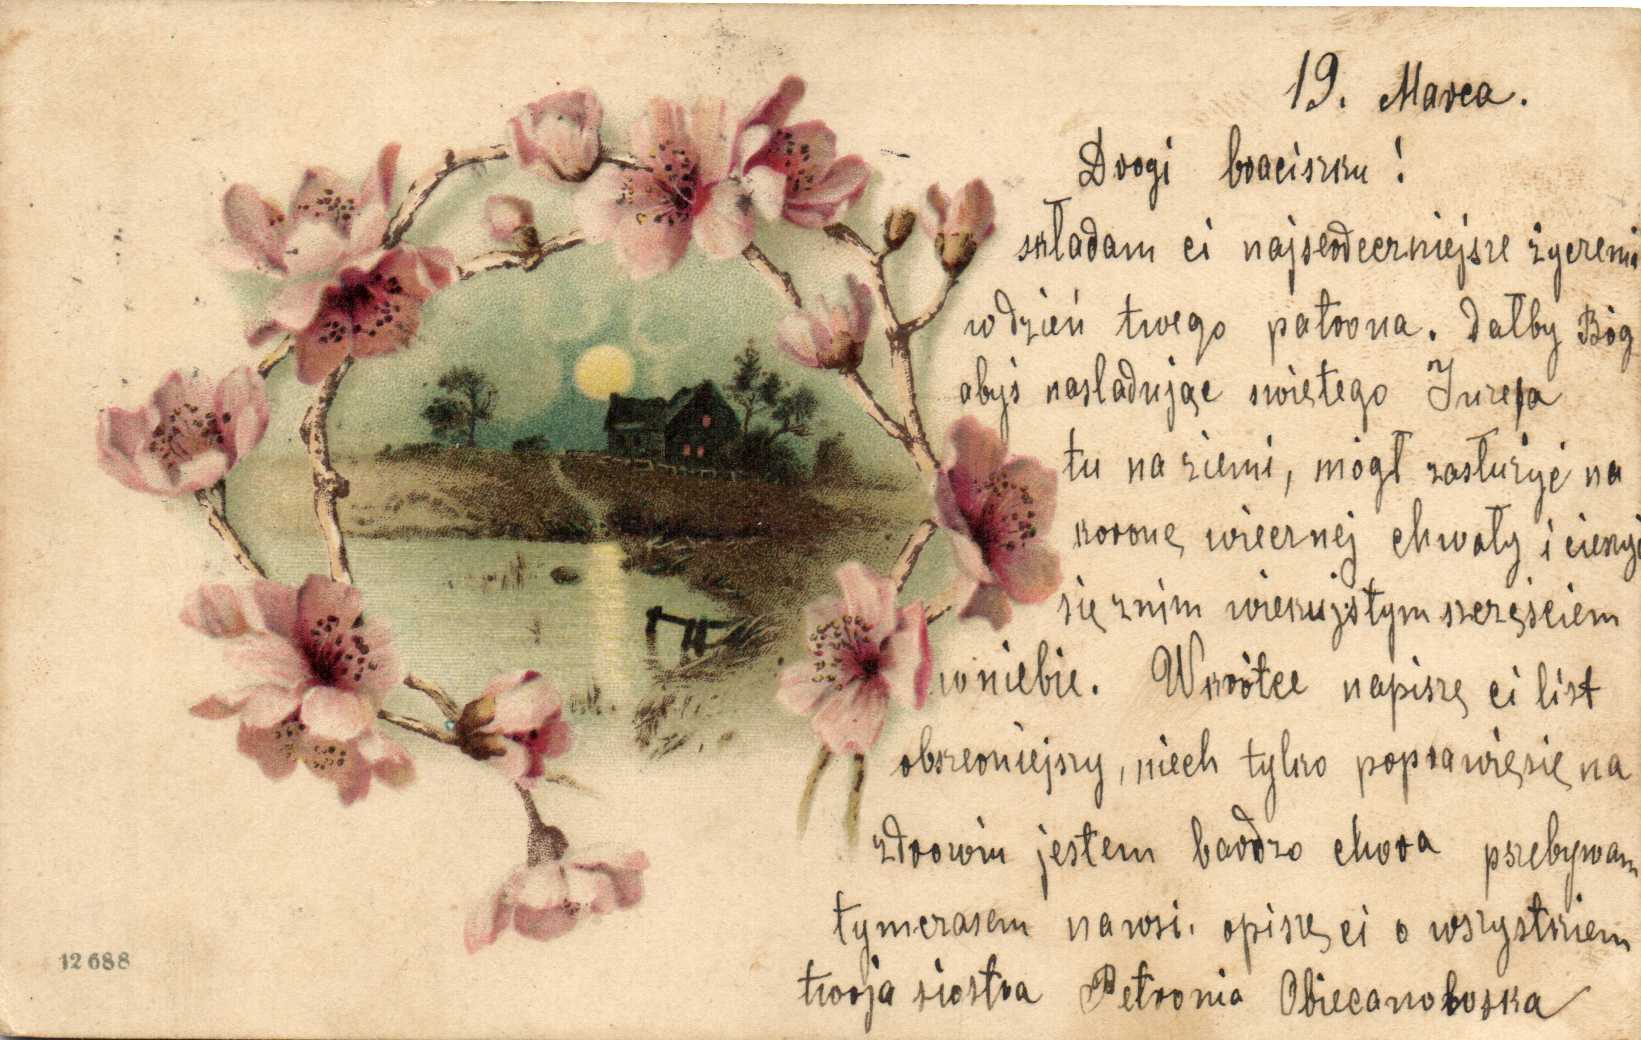 19. Marca.
Drogi braciszku!
składam ci najserdeczniejsze życzenia
w dzień twego patrona. Dałby Bóg
abyś nasladując swiętego Jozefa
tu na ziemi, mógł zasłużyć na
koronę wiecznej chwały i cieszyć
się z nim wiekujstym szczęsciem
w niebie. Wkrótce napiszę ci list
obszerniejszy, niech tylko poprawię się na
zdrowiu jestem bardzo chora przebywam
tymczasem na wsi. opiszę ci o wszystkiem
twoja siostra Petronia
12688